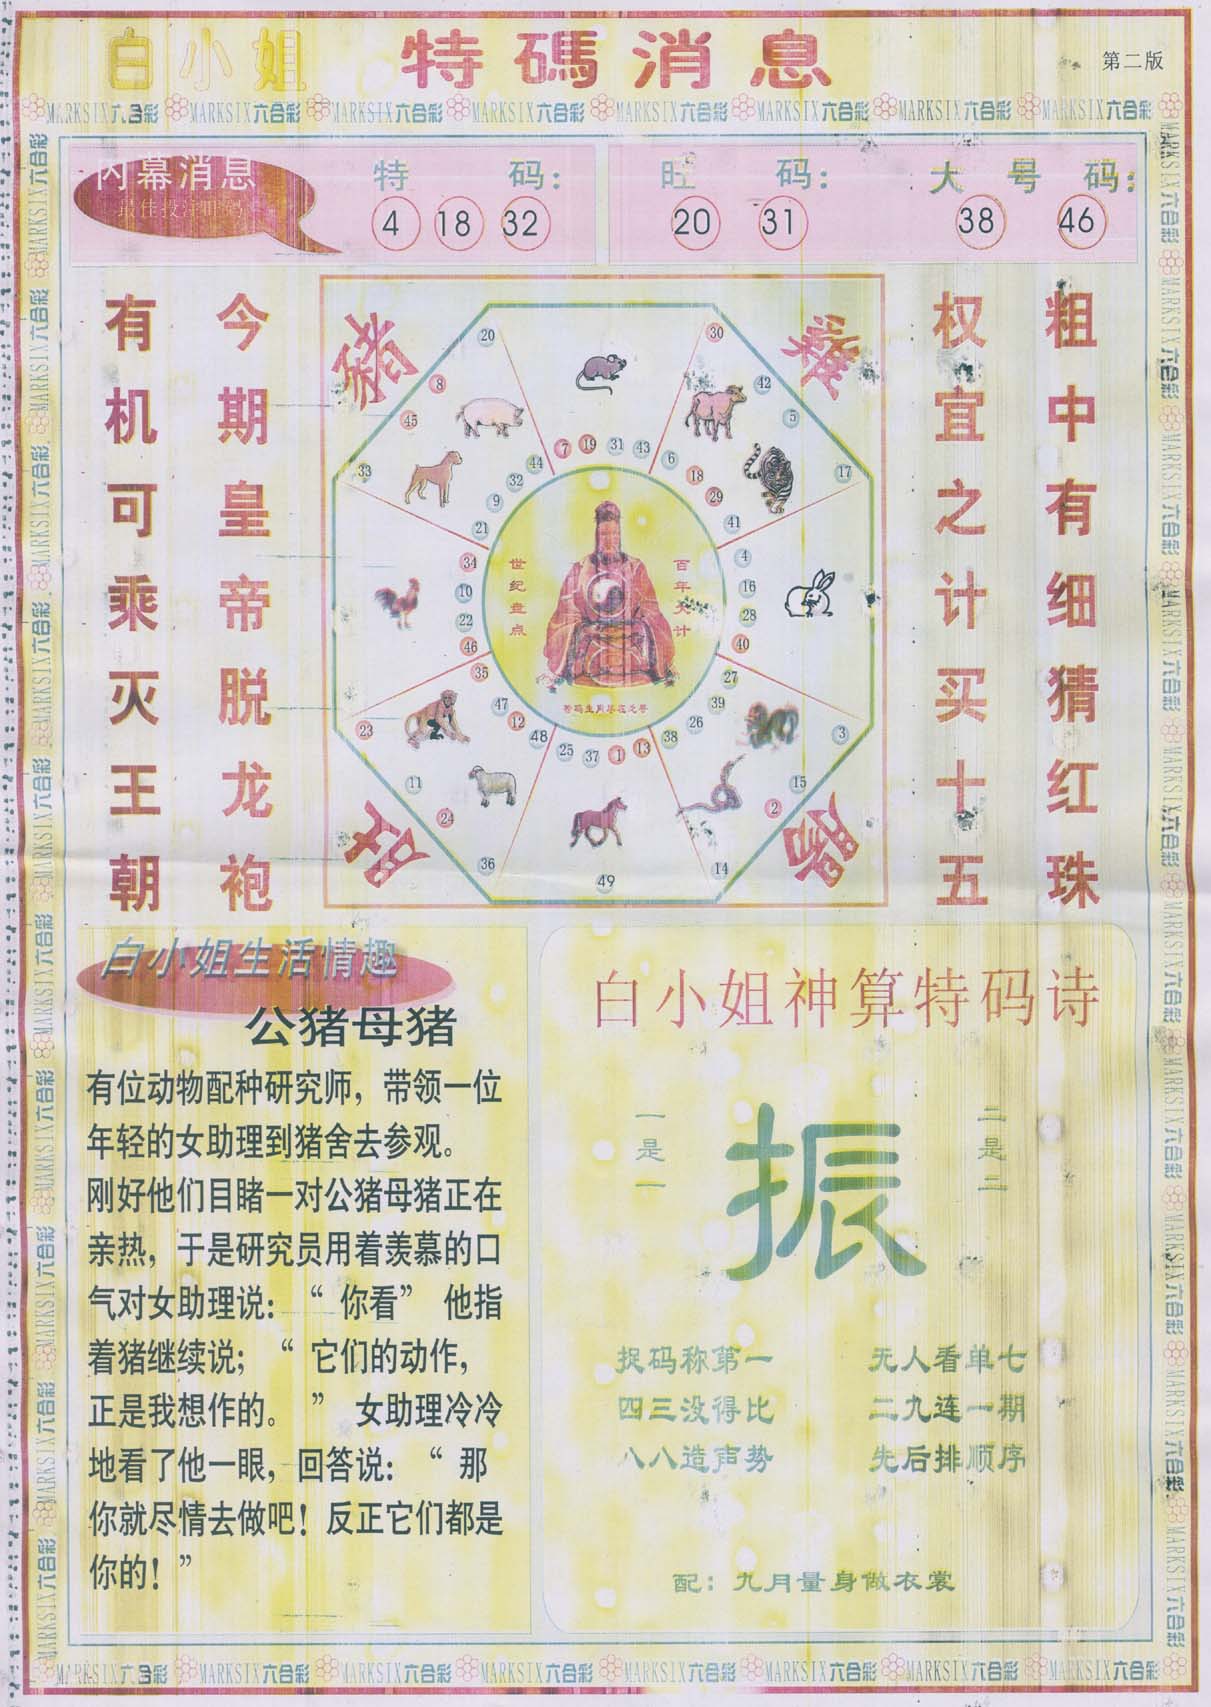 白小姐 特碼消息
第二版
MARKSIX六合彩 MARKSIX六合彩 MARKSIX六合彩 MARKSIX六合彩 MARKSIX六合彩 MARKSIX六合彩 MARKSIX六合彩 MARKSIX六合彩
内幕消息
特码:
4 18 32
旺码:
20 31
大号码:
38 46
粗中有细猜红珠
权宜之计买十五
今期皇帝脱龙袍
有机可乘灭王朝
豬
雞
20
30
8
42
45
5
33
17
7 19 31 43
44
6
32
18
9
29
21
41
34
4
10
16
22
28
46
40
35
27
47
39
12
26
48
38
25 37 1 13
23
3
11
15
24
2
36
14
49
世纪盘点
百年天计
白小姐生活情趣
公猪母猪
有位动物配种研究师，带领一位
年轻的女助理到猪舍去参观。
刚好他们目睹一对公猪母猪正在
亲热，于是研究员用着羡慕的口
气对女助理说：“你看” 他指
着猪继续说；“它们的动作，
正是我想作的。” 女助理冷冷
地看了他一眼，回答说：“那
你就尽情去做吧！反正它们都是
你的！”
白小姐神算特码诗
一是一
振
二是二
捉码称第一 无人看单七
四三没得比 二九连一期
八八造声势 先后排顺序
配：九月量身做衣裳
MARKSIX六合彩 MARKSIX六合彩 MARKSIX六合彩 MARKSIX六合彩 MARKSIX六合彩 MARKSIX六合彩 MARKSIX六合彩 MARKSIX六合彩